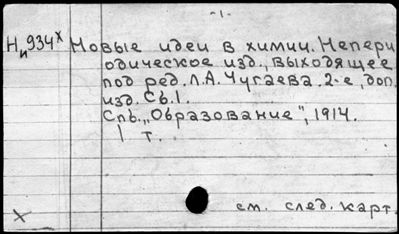 -1-
Ни934х Новые идеи в химии. Непери
одическое изд., выходящее
под ред. Л.А. Чугаева. 2-е, доп.
изд. Сб. 1.
Спб. „Образование", 1914.
1 т.
см. след. карт.
х